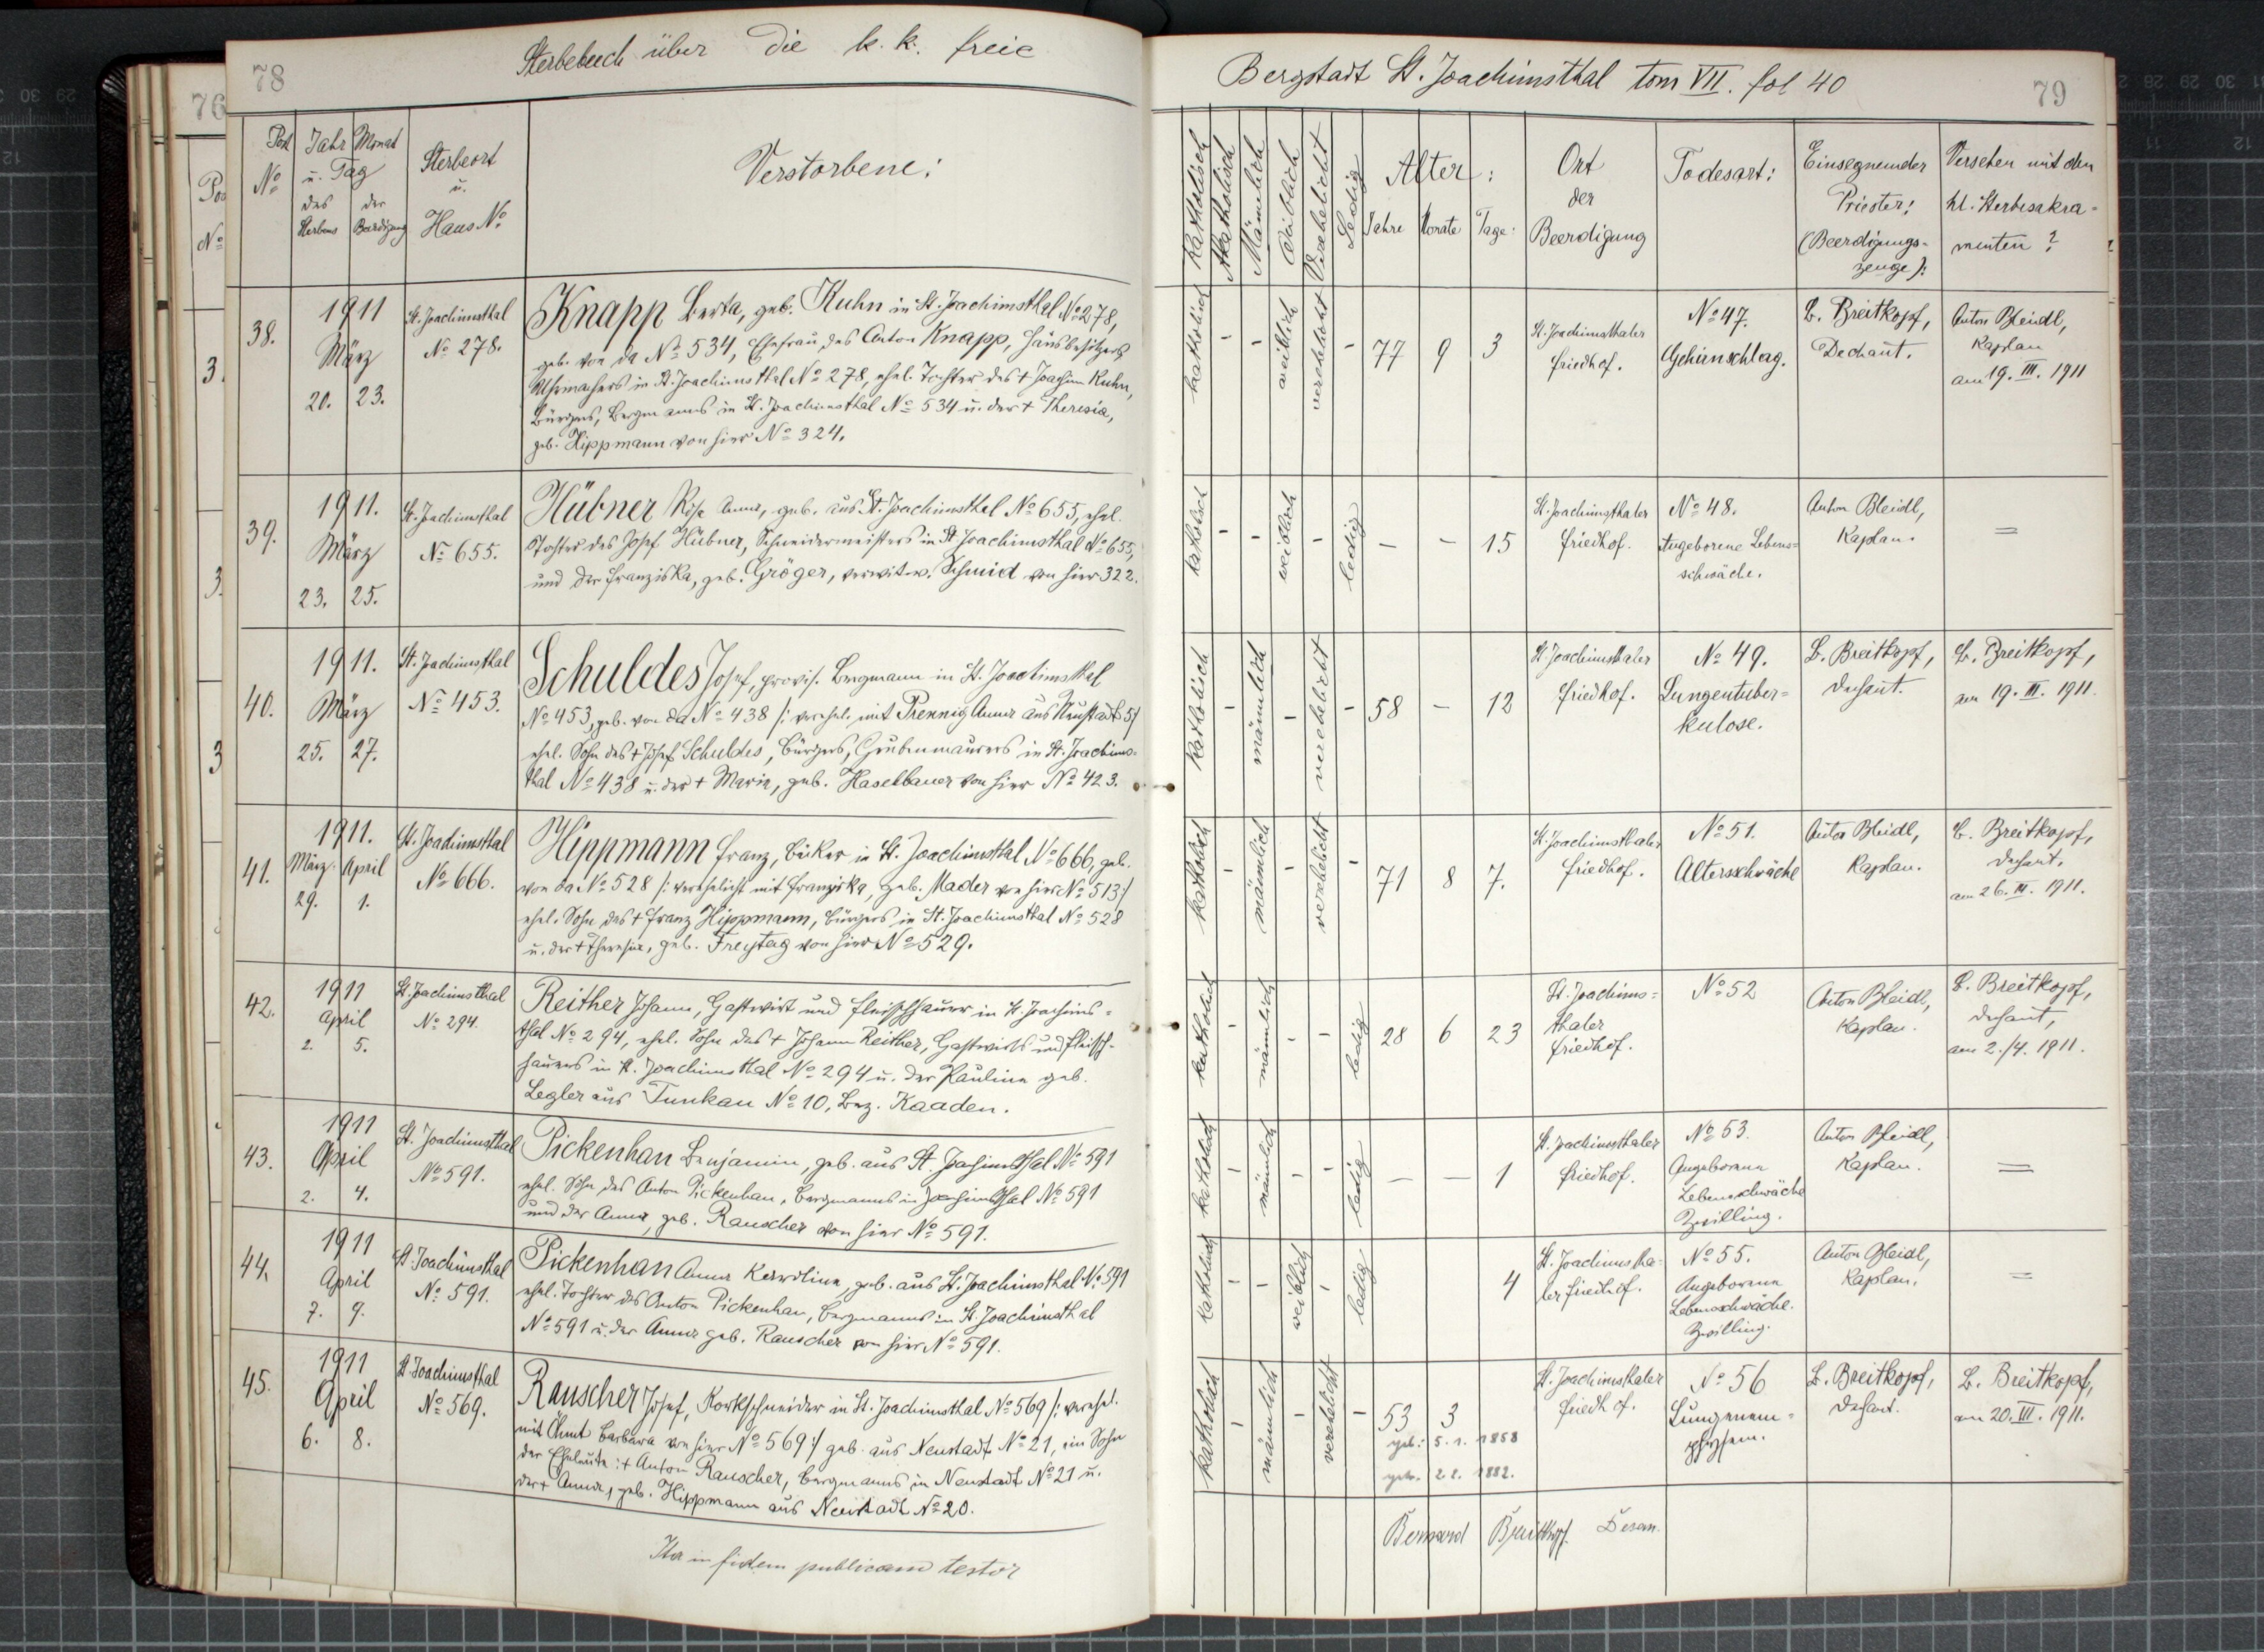 78
Sterbebuch über die k. k. freie
Post
No
Jahr Monat
u. Tag
des der
Sterbens Beerdigung
Sterbeort
u.
Haus No
Verstorbene:
38.
1911
März
20. 23.
St. Joachimsthal
No 278.
Knapp Berta, geb. Kuhn in St. Joachimsthal No 278,
geb. von da No 534, Ehefrau des Anton Knapp, Hausbesitzers
Uhrmachers in St. Joachimsthal No 278, ehel. Tochter des + Joachim Kuhn,
Bürgers, Bergmanns in St. Joachimsthal No 534 u. der + Theresia,
geb. Hippmann von hier No 324.
39.
1911.
März
23. 25.
St. Joachimsthal
No 655.
Hübner Rosa Anna, geb. aus St. Joachimsthal No 655, ehel.
Tochter des Josef Hübner, Schneidermeisters in St. Joachimsthal No 655,
und der Franziska, geb. Gröger, verwitw. Schmid von hier 322.
40.
1911.
März
25. 27.
St. Joachimsthal
No 453.
Schuldes Josef, provis. Bergmann in St. Joachimsthal
No 453, geb. von da No 438 /: verehel. mit Prennig Anna aus Neustadt 5/
ehel. Sohn des + Josef Schuldes, Bürgers, Grubenmaurers in St. Joachims-
thal No 438 u. der + Maria, geb. Haselbauer von hier No 423.
41.
1911.
März April
29. 1.
St. Joachimsthal
No 666.
Hippmann Franz, Bäcker in St. Joachimsthal No 666, geb.
von da No 528 /: verehelicht mit Franziska, geb. Mader von hier No 513:/
ehel. Sohn des + Franz Hippmann, Bürgers in St. Joachimsthal No 528
u. der + Theresia, geb. Freytag von hier No 529.
42.
1911
April
2. 5.
St. Joachimsthal
No 294.
Reither Johann, Gastwirt und Fleischhauer in St. Joachims=
thal No 294, ehel. Sohn des + Johann Reither, Gastwirts und Fleisch-
hauers in St. Joachimsthal No 294 u. der Pauline geb.
Legler aus Tunkau No 10, Bez. Kaaden.
43.
1911
April
2. 4.
St. Joachimsthal
No 591.
Pickenhan Benjamin, geb. aus St. Joachimsthal No 591
ehel. Sohn des Anton Pickenhan, Bergmanns in Joachimsthal No 591
und der Anna, geb. Rauscher von hier No 591.
44.
1911
April
7. 9.
St. Joachimsthal
No 591.
Pickenhan Anna Karolina, geb. aus St. Joachimsthal No 591
ehel. Tochter des Anton Pickenhan, Bergmanns in St. Joachimsthal
No 591 u. der Anna geb. Rauscher von hier No 591.
45.
1911
April
6. 8.
St. Joachimsthal
No 569.
Rauscher Josef, Korkschneider in St. Joachimsthal No 569 /: verehel.
mit Barbara von hier No 569:/ geb. aus Neustadt No 21, ein Sohn
der Eheleute: + Anton Rauscher, Bergmanns in Neustadt No 21 u.
der + Anna, geb. Hippmann aus Neustadt No 20.
Ita in fidem publicam testor
Bergstadt St. Joachimsthal tom VII. fol 40
79
Katholisch
Akatholisch
Männlich
Weiblich
Verehelicht
Ledig
Alter:
Jahre Monate Tage:
Ort
der
Beerdigung
Todesart:
Einsegnender
Priester:
(Beerdigungs-
zeuge):
Versehen mit den
hl. Sterbesakra=
menten?
katholisch - - weiblich verehelicht -
77 9 3
St. Joachimsthaler
Friedhof.
No 47.
Gehirnschlag.
B. Breitkopf,
Dechant.
Anton Bleidl,
Kaplan
am 19. III. 1911
katholisch - - weiblich - ledig
- - 15
St. Joachimsthaler
Friedhof.
No 48.
Angeborene Lebens=
schwäche.
Anton Bleidl,
Kaplan.
=
katholisch - männlich - verehelicht -
58 - 12
St. Joachimsthaler
Friedhof.
No 49.
Lungentuber=
kulose.
B. Breitkopf,
Dechant.
B. Breitkopf,
am 19. III. 1911.
katholisch - männlich - verehelicht -
71 8 7.
St. Joachimsthaler
Friedhof.
No 51.
Altersschwäche
Anton Bleidl,
Kaplan.
B. Breitkopf,
Dechant,
am 26. III. 1911.
katholisch - männlich - - ledig
28 6 23
St. Joachims=
thaler
Friedhof.
No 52
Anton Bleidl,
Kaplan.
B. Breitkopf,
Dechant,
am 2./4. 1911.
katholisch - männlich - - ledig
- - 1
St. Joachimsthaler
Friedhof.
No 53.
Angeborene
Lebensschwäche
Zwilling.
Anton Bleidl,
Kaplan.
=
katholisch - - weiblich - ledig
4
St. Joachimstha-
ler Friedhof.
No 55.
Angeborene
Lebensschwäche.
Zwilling.
Anton Bleidl,
Kaplan.
=
katholisch - männlich - verehelicht -
53 3
geb: 5. 1. 1858
2. 2. 1882.
St. Joachimsthaler
Friedhof.
No 56
Lungenem=
physem.
B. Breitkopf,
Dechant.
B. Breitkopf,
am 20. III. 1911.
Bernard Breitkopf Dechan.
76